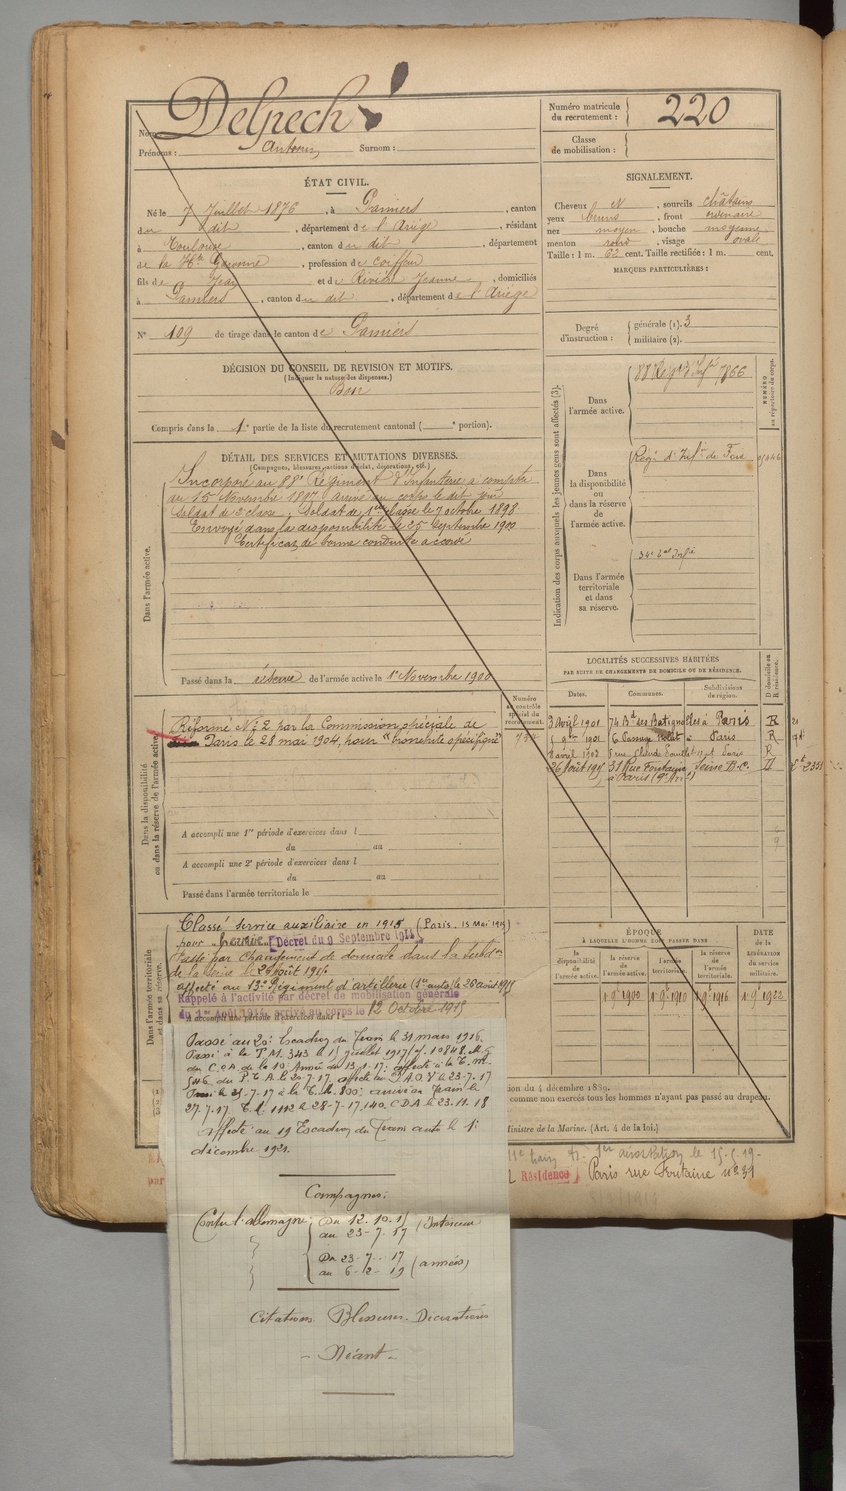 Nom : Delpech
Prénoms : Antonin Surnom :
Numéro matricule du recrutement : 220
Classe de mobilisation :
ÉTAT CIVIL.
Né le 7 Juillet 1876, à Pamiers, canton
du dit, département de l'Ariège, résidant
à Toulouse, canton du dit, département
de la Hte Garonne, profession de coiffeur
fils de Jean et de Rivière Jeanne, domiciliés
à Pamiers, canton du dit, département de l'Ariège
N° 109 de tirage dans le canton de Pamiers
SIGNALEMENT.
Cheveux N, sourcils châtains
yeux bruns, front ordinaire
nez moyen, bouche moyenne
menton rond, visage ovale
Taille : 1 m. 62 cent. Taille rectifiée : 1 m. cent.
MARQUES PARTICULIÈRES :
Degré d'instruction : générale (1). 3
militaire (2).
DÉCISION DU CONSEIL DE REVISION ET MOTIFS.
(Indiquer la nature des dispenses.)
Bon
Compris dans la 1e partie de la liste du recrutement cantonal ( e portion).
DÉTAIL DES SERVICES ET MUTATIONS DIVERSES.
(Campagnes, blessures, actions d'éclat, décorations, etc.)
Dans l'armée active.
Incorporé au 88e Régiment d'Infanterie à compter
du 15 Novembre 1897 arrivé au corps le dit jour
Soldat de 2e classe, Soldat de 1ère classe le 7 octobre 1898
Envoyé dans la disponibilité le 25 Septembre 1900
Certificat de bonne conduite accordé
Passé dans la réserve de l'armée active le 1er Novembre 1900
Indication des corps auxquels les jeunes gens sont affectés (3).
NUMÉRO au répertoire du corps.
Dans l'armée active.
88e Régt d'Infie 7866
Dans la disponibilité ou dans la réserve de l'armée active.
Régt d'Infie de Foix
Dans l'armée territoriale et dans sa réserve.
LOCALITÉS SUCCESSIVES HABITÉES
PAR SUITE DE CHANGEMENTS DE DOMICILE OU DE RÉSIDENCE.
Dates. Communes. Subdivisions de région. D domicile ou R résidence.
3 Avril 1901 74 Bd des Batignolles à Paris R
1901 6 Passage à Paris R
8 avril 1903 5 rue Paris R
26 Août 1915 39 Rue Fontaine Seine B.C. D
à Paris (9e Arrt)
Numéro au contrôle spécial du recrutement.
Dans la disponibilité ou dans la réserve de l'armée active.
Réformé N° 2 par la Commission spéciale de
Paris le 28 mai 1904, pour "bronchite spécifique"
A accompli une 1re période d'exercices dans l
du au
A accompli une 2e période d'exercices dans l
du au
Passé dans l'armée territoriale le
Dans l'armée territoriale et dans sa réserve.
Classé service auxiliaire en 1915 (Paris. 15 Mai 1915)
pour "hernie" Décret du 9 Septembre 1914
Passé par Changement de domicile dans la subdon
de la Seine le 26 août 1915
affecté au 13e Régiment d'artillerie (1er auto) le 26 août 1915
Rappelé à l'activité par décret de mobilisation générale
du 1er Août 1914, arrivé au corps le 12 Octobre 1915
A accompli une période d'exercices dans l
ÉPOQUE
À LAQUELLE L'HOMME DOIT PASSER DANS
la disponibilité de l'armée active. la réserve de l'armée active. l'armée territoriale. la réserve de l'armée territoriale.
DATE de la LIBÉRATION du service militaire.
1 9bre 1900 1 9bre 1910 1 9bre 1916 1 9bre 1922
Passé au 20e Escadron du Train le 31 mars 1916.
Passé à la T.M. 343 le 15 juillet 1917
du C.C.A. de la 10e Armée du 13-7-17; affecté à la T.M.
546, du P.C.A. le 20-7-17 le 23-7-17
Passé le 25-7-17 à la T.M. 800; train le
27-7-17 1112 le 28-7-17, 140 CDA le 23-11-18
affecté au 19 Escadron du Train auto le 1er
décembre 1921.
ion du 4 décembre 1889.
comme non exercés tous les hommes n'ayant pas passé au drapeau.
Ministre de la Marine. (Art. 4 de la loi.)
Résidence Paris rue Fontaine n° 39
Campagnes:
Contre l'allemagne du 12-10-15 au 23-7-17 (Intérieur
Du 23-7-17 au 6-2-19 (armées)
Citations. Blessures. Décorations
- Néant -